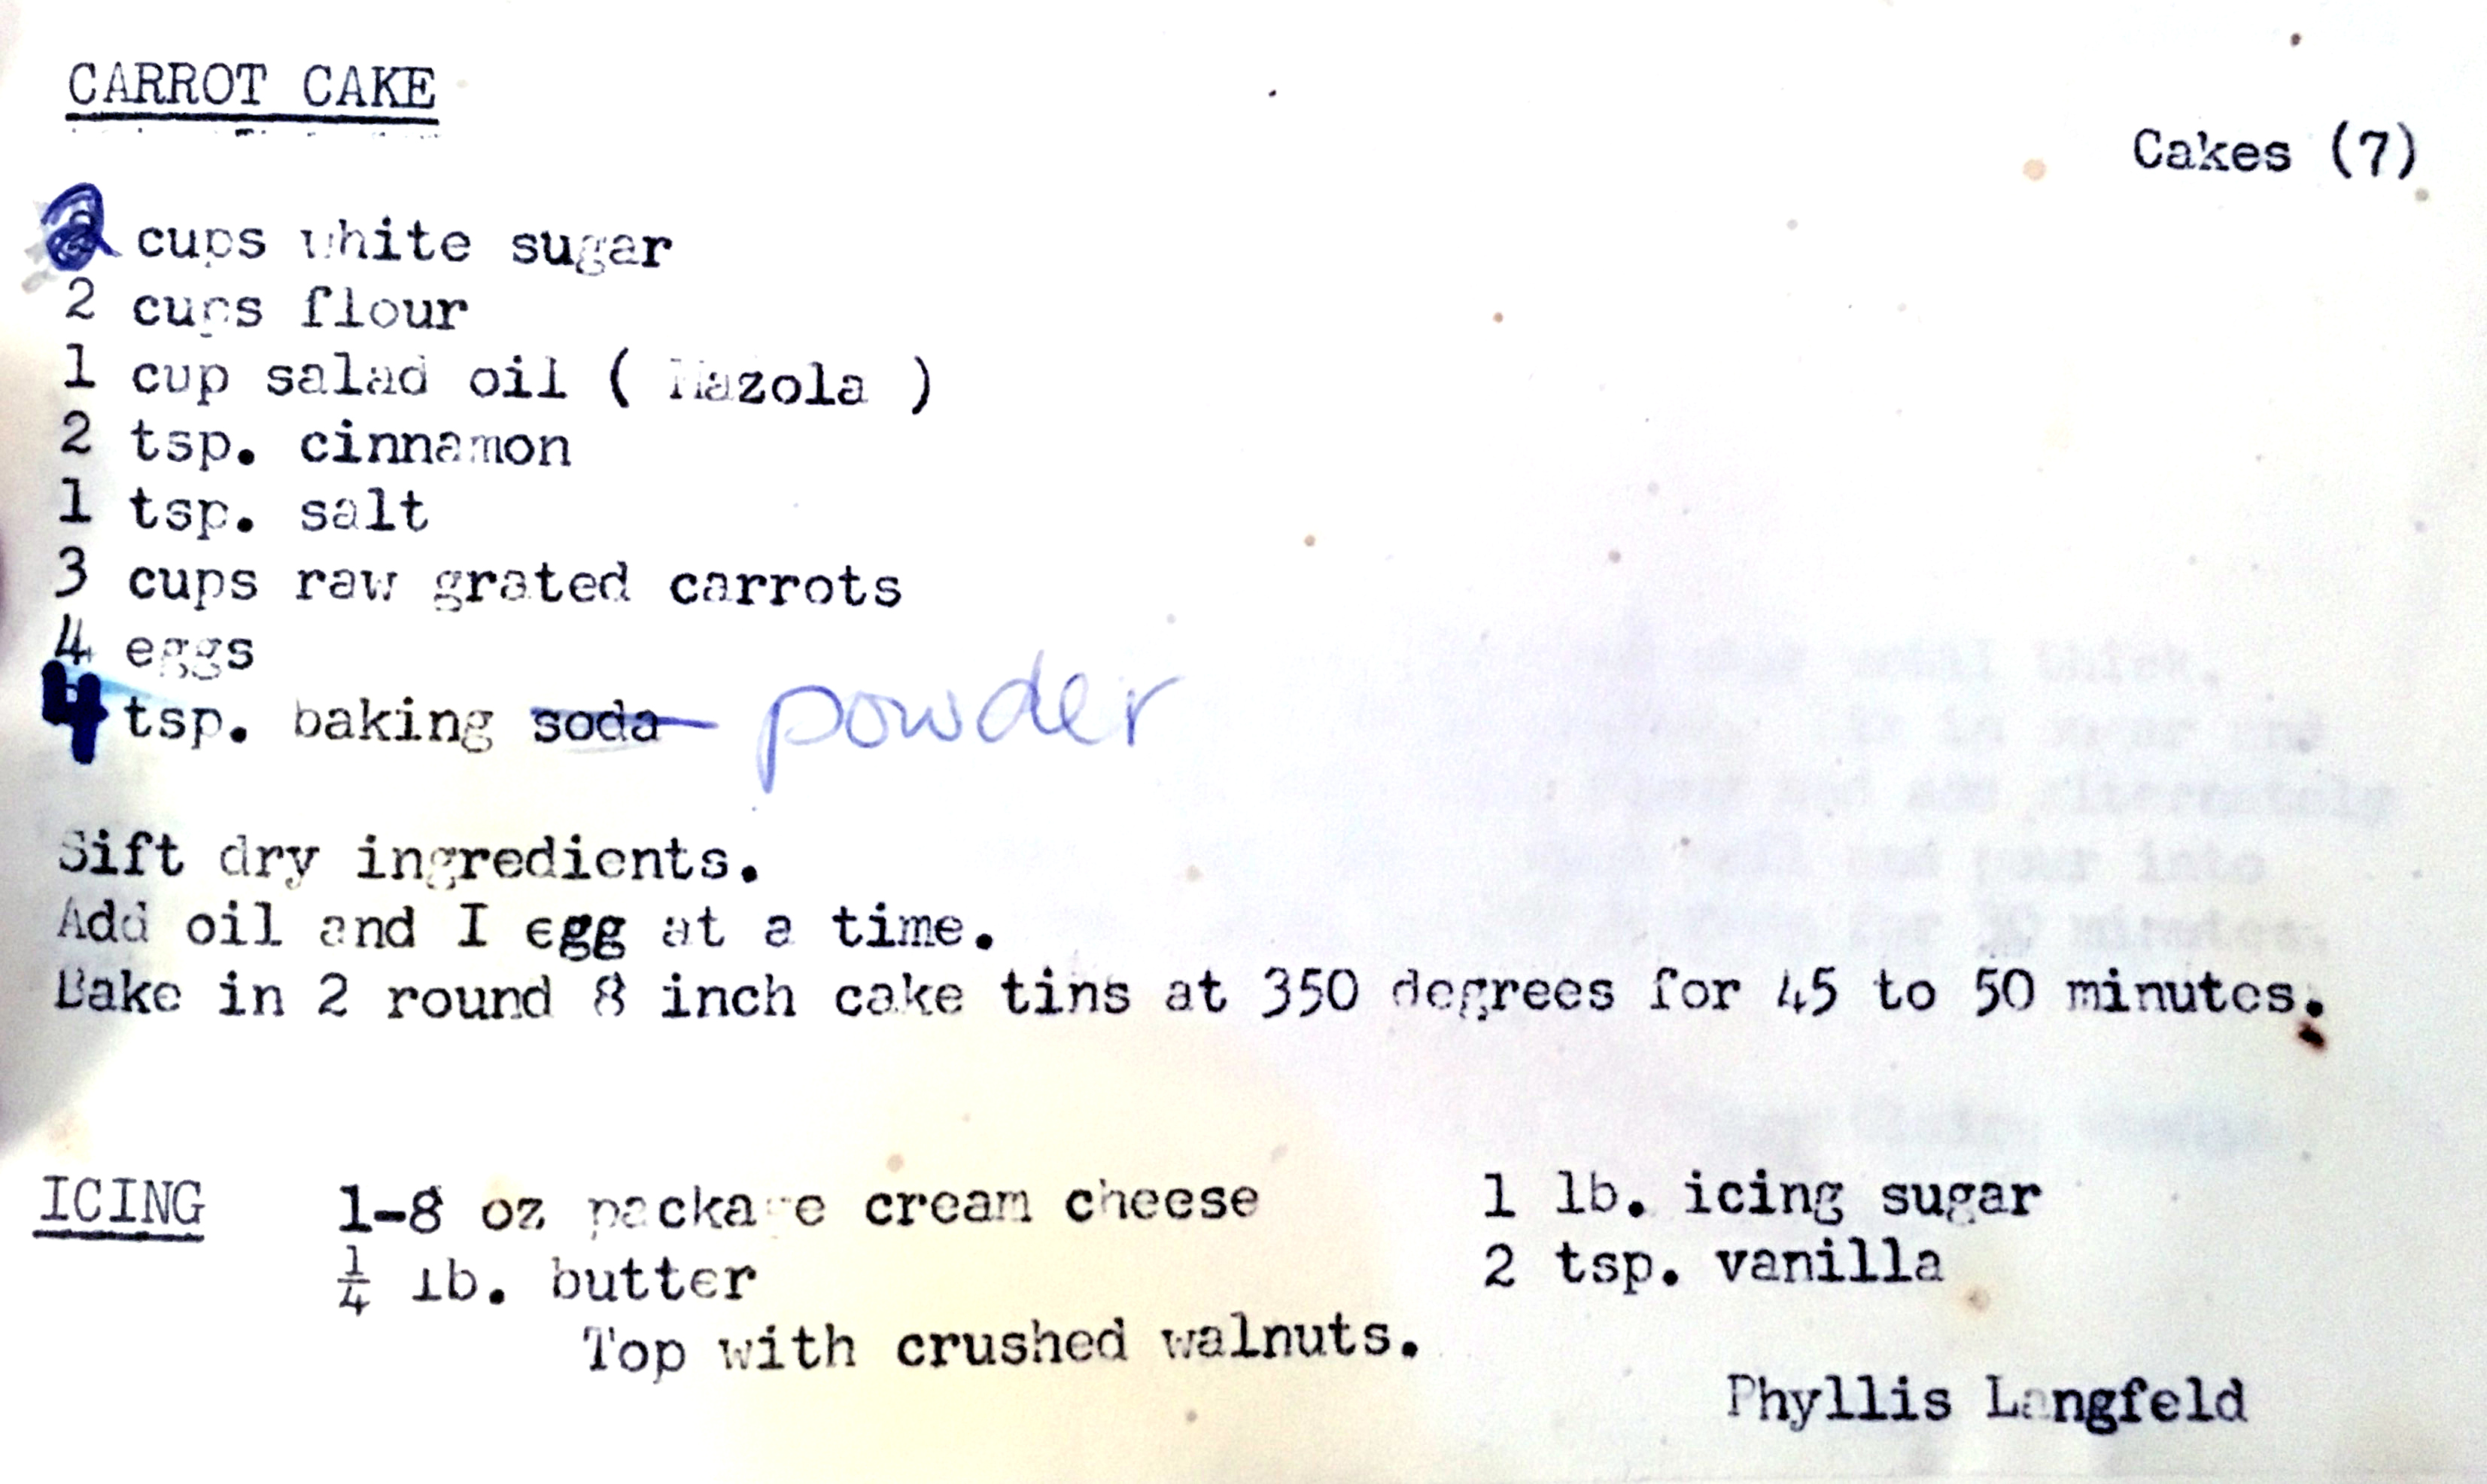 CARROT CAKE
Cakes (7)
2 cups white sugar
2 cups flour
1 cup salad oil ( Mazola )
2 tsp. cinnamon
1 tsp. salt
3 cups raw grated carrots
4 eggs
4 tsp. baking soda powder
Sift dry ingredients.
Add oil and I egg at a time.
Bake in 2 round 8 inch cake tins at 350 degrees for 45 to 50 minutes.
ICING 1-8 oz package cream cheese 1 lb. icing sugar
1/4 lb. butter 2 tsp. vanilla
Top with crushed walnuts.
Phyllis Langfeld